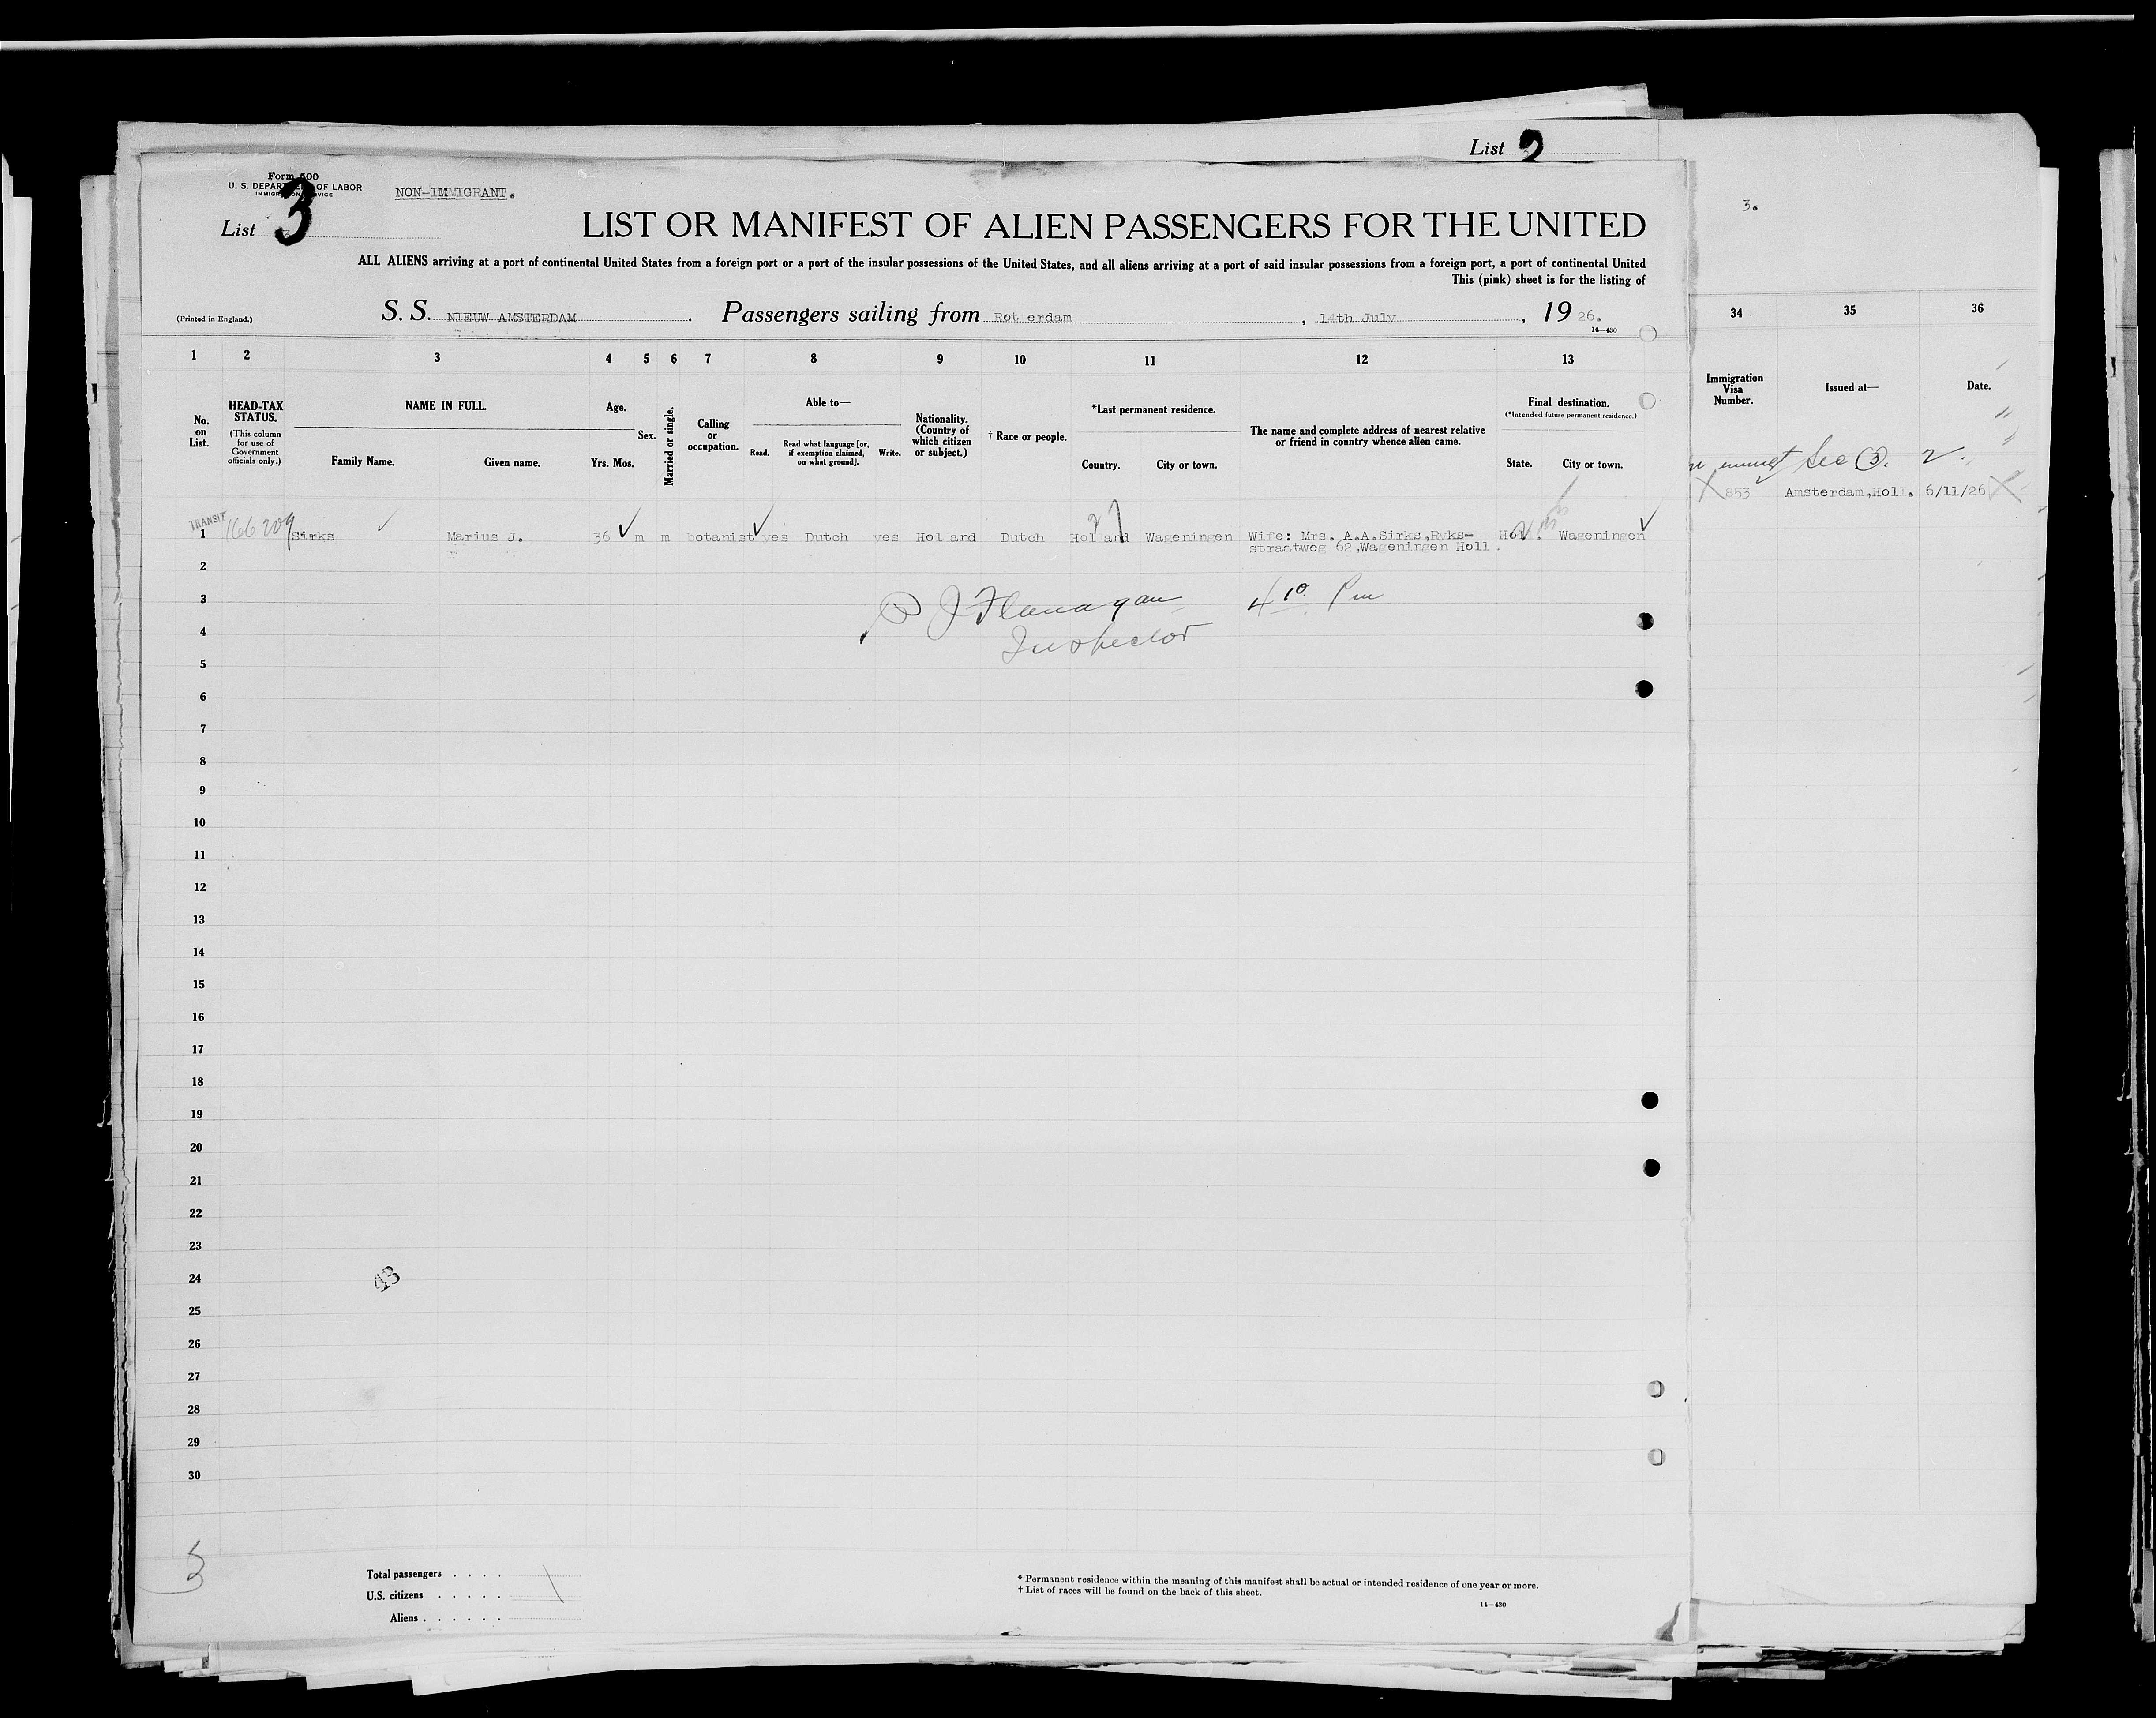 List 2
Form 500
U. S. DEPARTMENT OF LABOR
IMMIGRATION SERVICE
NON-IMMIGRANT.
List 3
3.
LIST OR MANIFEST OF ALIEN PASSENGERS FOR THE UNITED
ALL ALIENS arriving at a port of continental United States from a foreign port or a port of the insular possessions of the United States, and all aliens arriving at a port of said insular possessions from a foreign port, a port of continental United
This (pink) sheet is for the listing of
(Printed in England.)
S. S. NIEUW AMSTERDAM . Passengers sailing from Rot erdam , 14th July , 19 26.
14—430
1 2 3 4 5 6 7 8 9 10 11 12 13 34 35 36
No. on List.
HEAD-TAX STATUS.
(This column for use of Government officials only.)
NAME IN FULL.
Family Name. Given name.
Age.
Yrs. Mos.
Sex.
Married or single.
Calling or occupation.
Able to—
Read. Read what language [or, if exemption claimed, on what ground]. Write.
Nationality. (Country of which citizen or subject.)
† Race or people.
*Last permanent residence.
Country. City or town.
The name and complete address of nearest relative or friend in country whence alien came.
Final destination.
(*Intended future permanent residence.)
State. City or town.
Immigration Visa Number.
Issued at—
Date.
Sec 3. 2.
853 Amsterdam,Holl. 6/11/26
TRANSIT
1 166209 Sirks Marius J. 36 m m botanist yes Dutch yes Hol and Dutch Hol and Wageningen Wife: Mrs. A.A.Sirks,Ryks- Hol . Wageningen
straatweg 62,Wageningen Holl.
2
3
P J Flanagan 4 10 Pm
4
Inspector
5
6
7
8
9
10
11
12
13
14
15
16
17
18
19
20
21
22
23
24
43
25
26
27
28
29
30
3
Total passengers . . . .
U.S. citizens . . . . .
Aliens . . . . . .
* Permanent residence within the meaning of this manifest shall be actual or intended residence of one year or more.
† List of races will be found on the back of this sheet.
14—430